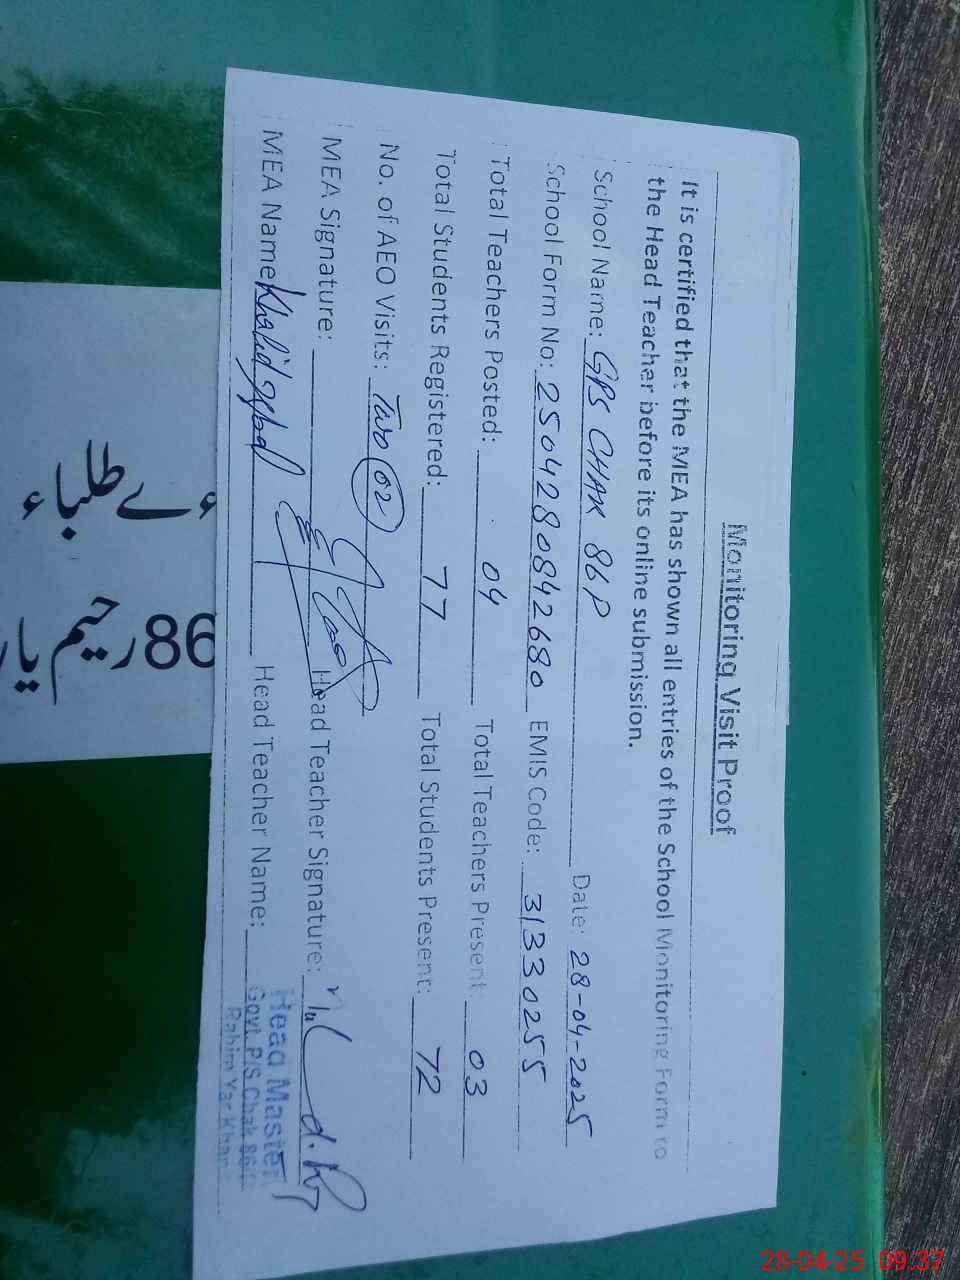 Monitoring Visit Proof
It is certified that the MEA has shown all entries of the School Monitoring Form to
the Head Teacher before its online submission.
School Name: GPS CHAK 86P Date: 28-04-2025
School Form No: 250428084268 0 EMIS Code: 31330255
Total Teachers Posted: 04 Total Teachers Present: 03
Total Students Registered: 77 Total Students Present: 72
No. of AEO Visits: Two 02
MEA Signature: Head Teacher Signature:
MEA Name: Khalid Head Teacher Name:
Head Master
Govt. P/S Chak 86
Rahim Yar Khan
ئے طلباء
86 رحیم یار
28-04-25 09:37